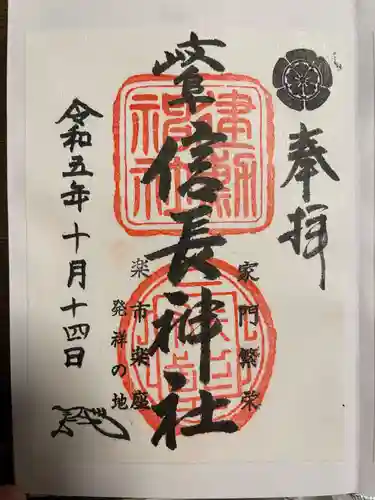 奉拝
岐阜信長神社
家門繁栄
楽市楽座
発祥の地
令和五年十月十四日
建勲神社